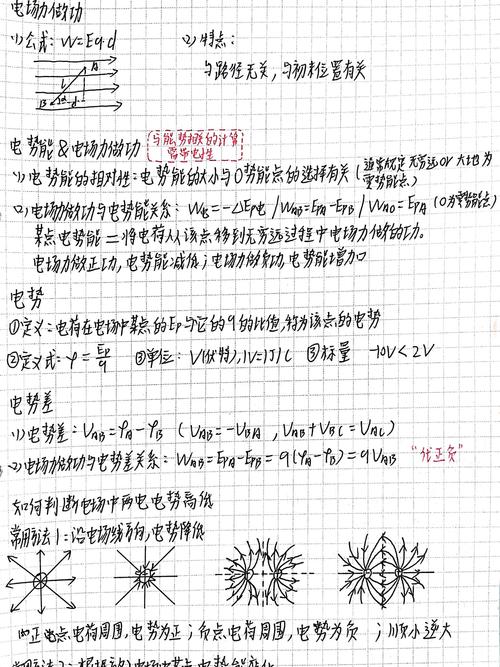 电场力做功
(1)公式: W=Eq·d (2)特点:
A
l
B d
与路径无关,与初末位置有关
电势能&电场力做功 与能,势相关的计算需带电性
(1)电势能的相对性:电势能的大小与0势能点的选择有关(通常规定无穷远or大地为零势能点)
(2)电场力做功与电势能关系: W电=-△Ep电 / WAB=EPA-EPB / WAO=EPA (O为零势能点)
某点电势能=将电荷从该点移到无穷远过程中电场力做的功。
电场力做正功,电势能减低;电场力做负功,电势能增加
电势
①定义:电荷在电场中某点的Ep与它的q的比值,称为该点的电势
②定义式:φ=Ep/q ③单位:V(伏特),1V=1J/C ③标量 -10V<2V
电势差
(1)电势差:UAB=φA-φB (UAB=-UBA ,UAB+UBC=UAC)
(2)电场力做功与电势差关系:WAB=EPA-EPB=q(φA-φB)=qUAB “代正负”
如何判断电场中两电电势高低
常用方法1:沿电场线方向,电势降低
正电点电荷周围,电势为正;负点电荷周围,电势为负 ;顺小逆大